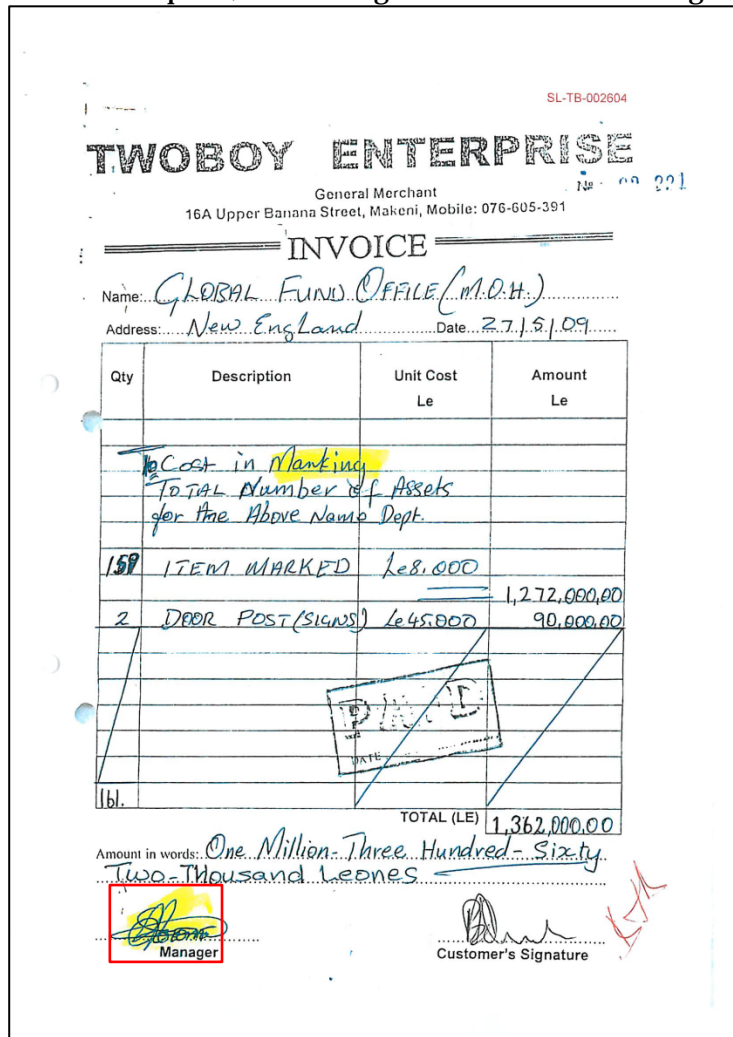 SL-TB-002604
TWOBOY ENTERPRISE
General Merchant
No
16A Upper Banana Street, Makeni, Mobile: 076-605-391
INVOICE
Name: GLOBAL FUND OFFICE (M.O.H.)
Address: New England Date 27/5/09
Qty Description Unit Cost Amount
Le Le
To Cost in Manking
TOTAL Number of Assets
for the Above Name Dept.
159 ITEM MARKED Le8.000
1,272,000,00
2 DOOR POST (SIGNS) Le45.000 90,000.00
PAID
DATE
161.
TOTAL (LE) 1,362,000.00
Amount in words: One Million-Three Hundred-Sixty
Two-Thousand Leones
Manager Customer's Signature